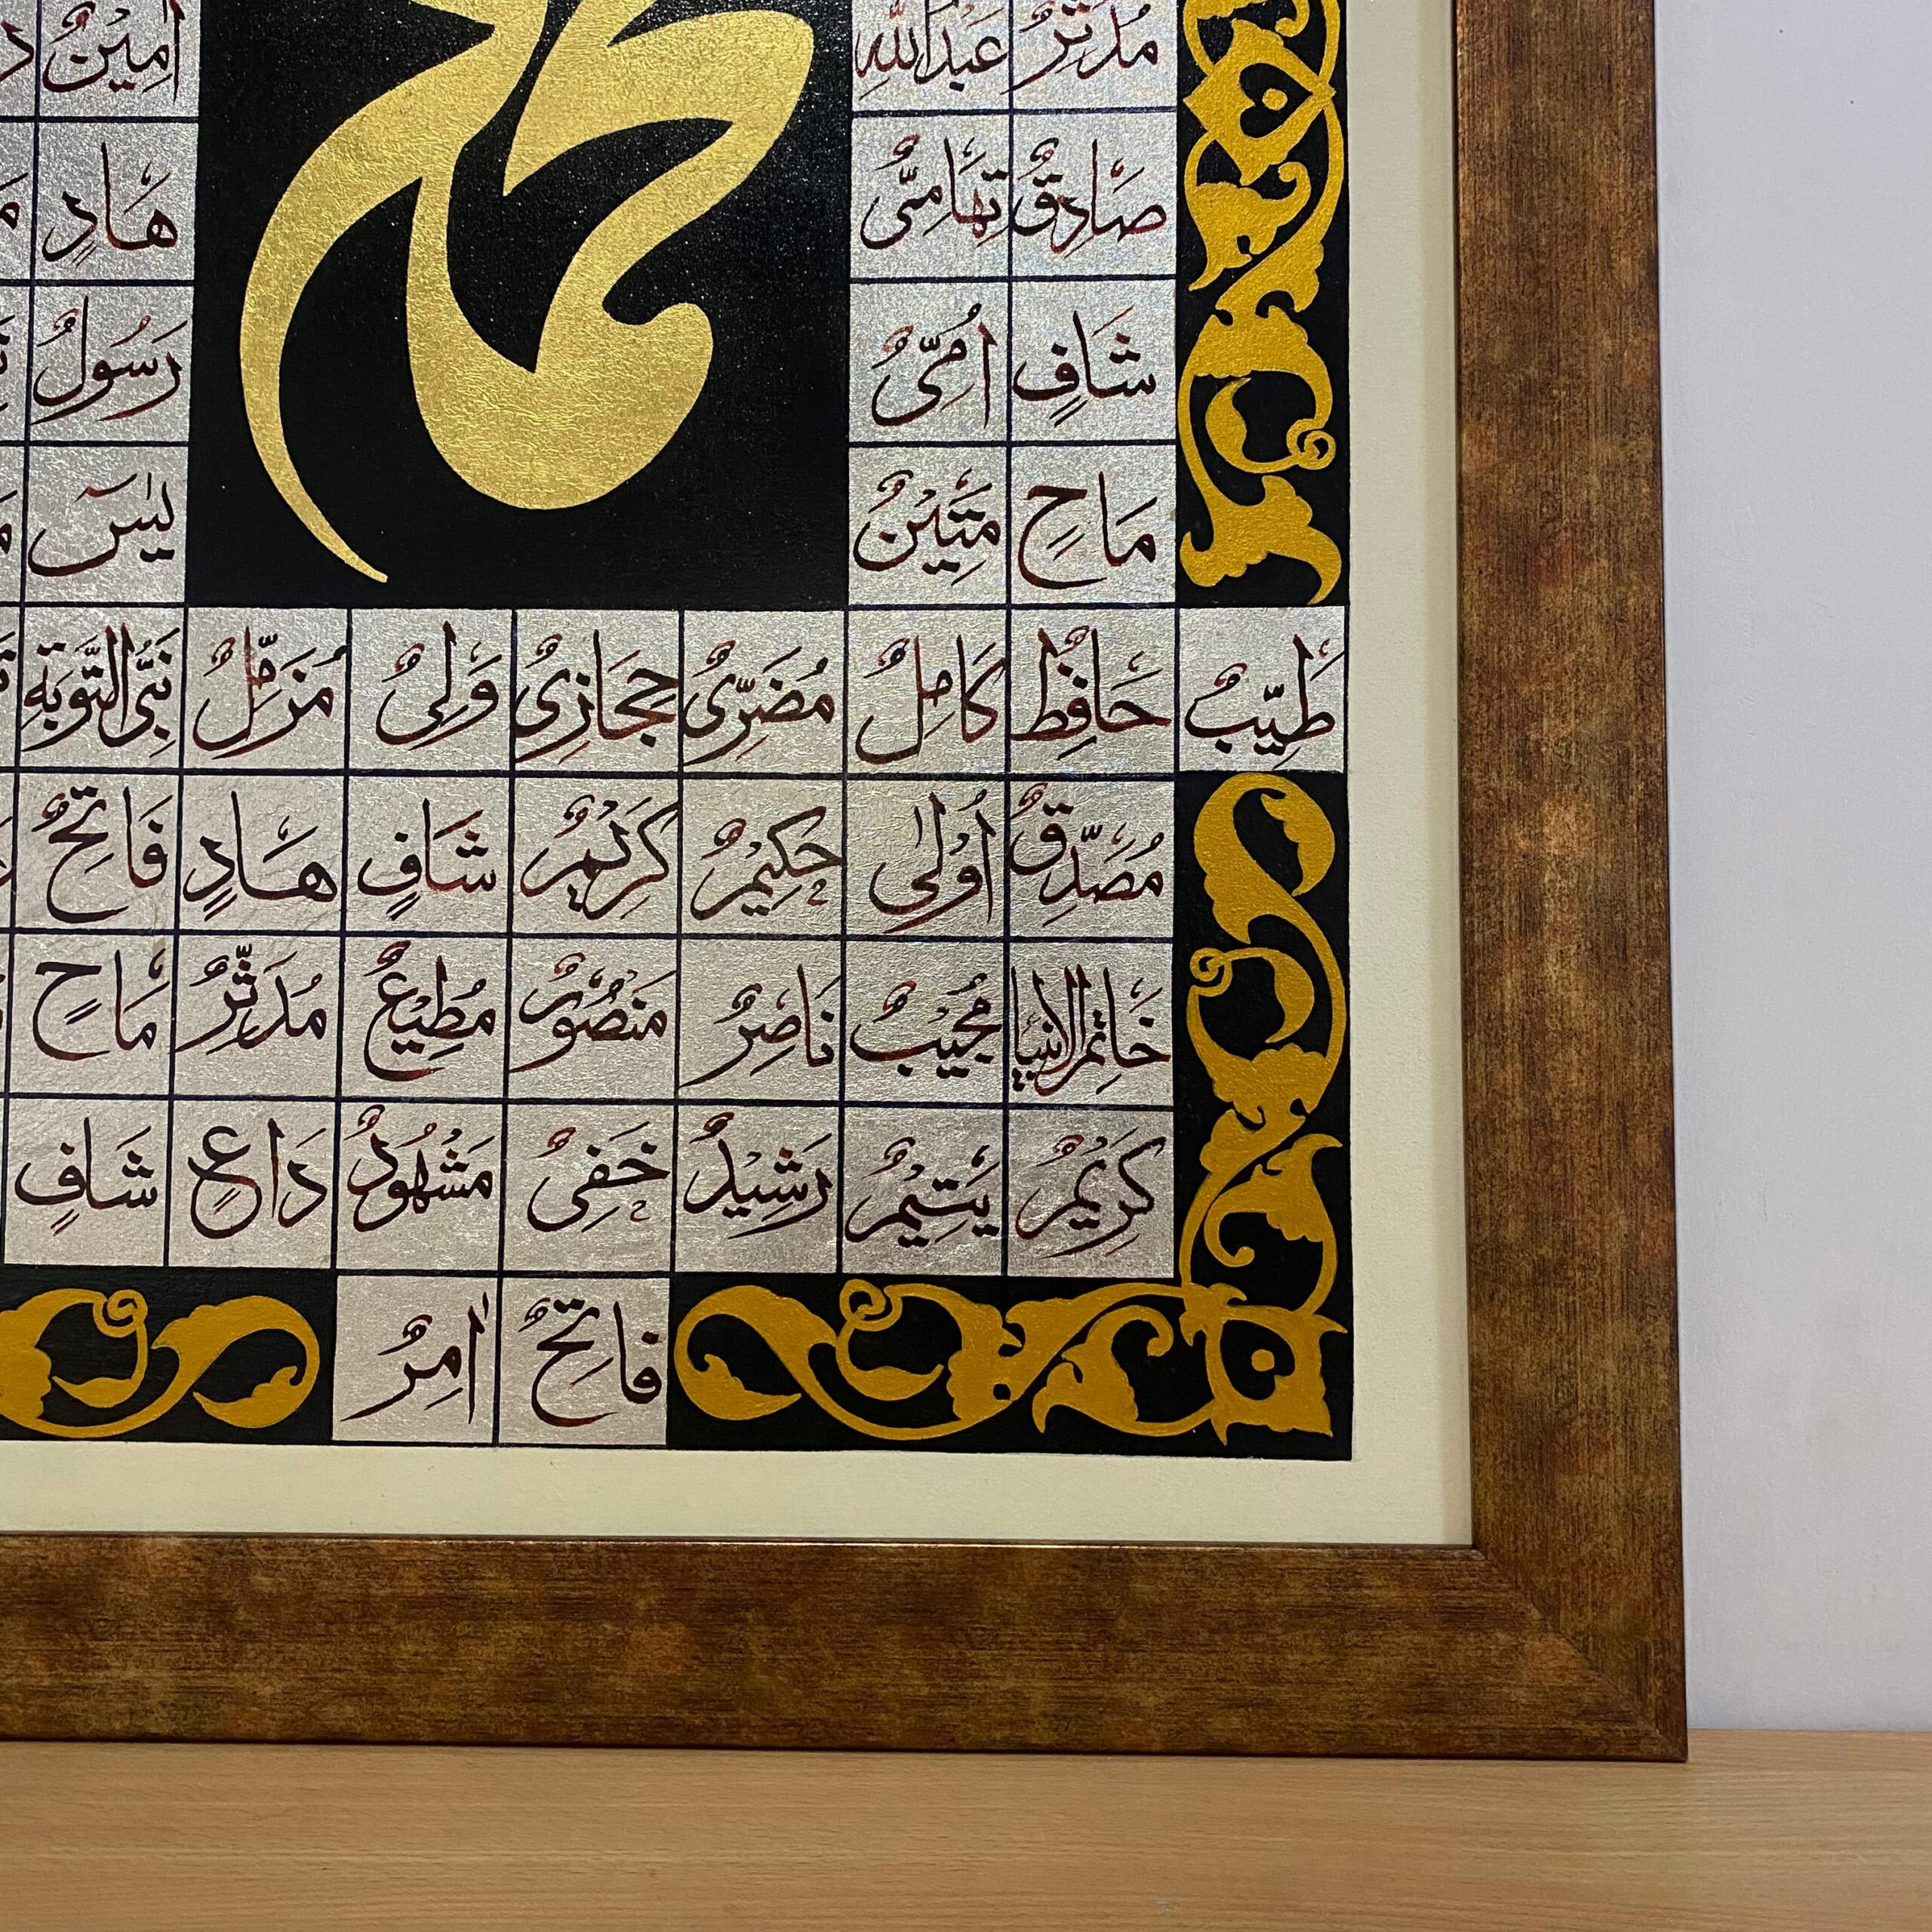 مُدَثِّرٌ عَبْدُاللّٰهِ اَمِيْنٌ
صَادِقٌ تِهَامِىٌّ هَادٍ
شَافٍ اُمِّىٌّ رَسُولٌ
مَاحٍ مَتِيْنٌ يٰسٓ
طَيِّبٌ حَافِظٌ كَامِلٌ مُضَرِىٌّ حِجَازِىٌّ وَلِىٌّ مُزَمِّلٌ نَبِىُّ التَّوْبَةِ
مُصَدِّقٌ أَوْلٰى حَكِيْمٌ كَرِيْمٌ شَافٍ هَادٍ فَاتِحٌ
خَاتِمُ الانبيا مُجِيْبٌ نَاصِرٌ مَنْصُوْرٌ مُطِيْعٌ مُدَثِّرٌ مَاحٍ
كَرِيْمٌ يَتِيْمٌ رَشِيْدٌ خَفِىٌّ مَشْهُوْدٌ دَاعٍ شَافٍ
فَاتِحٌ اٰمِرٌ